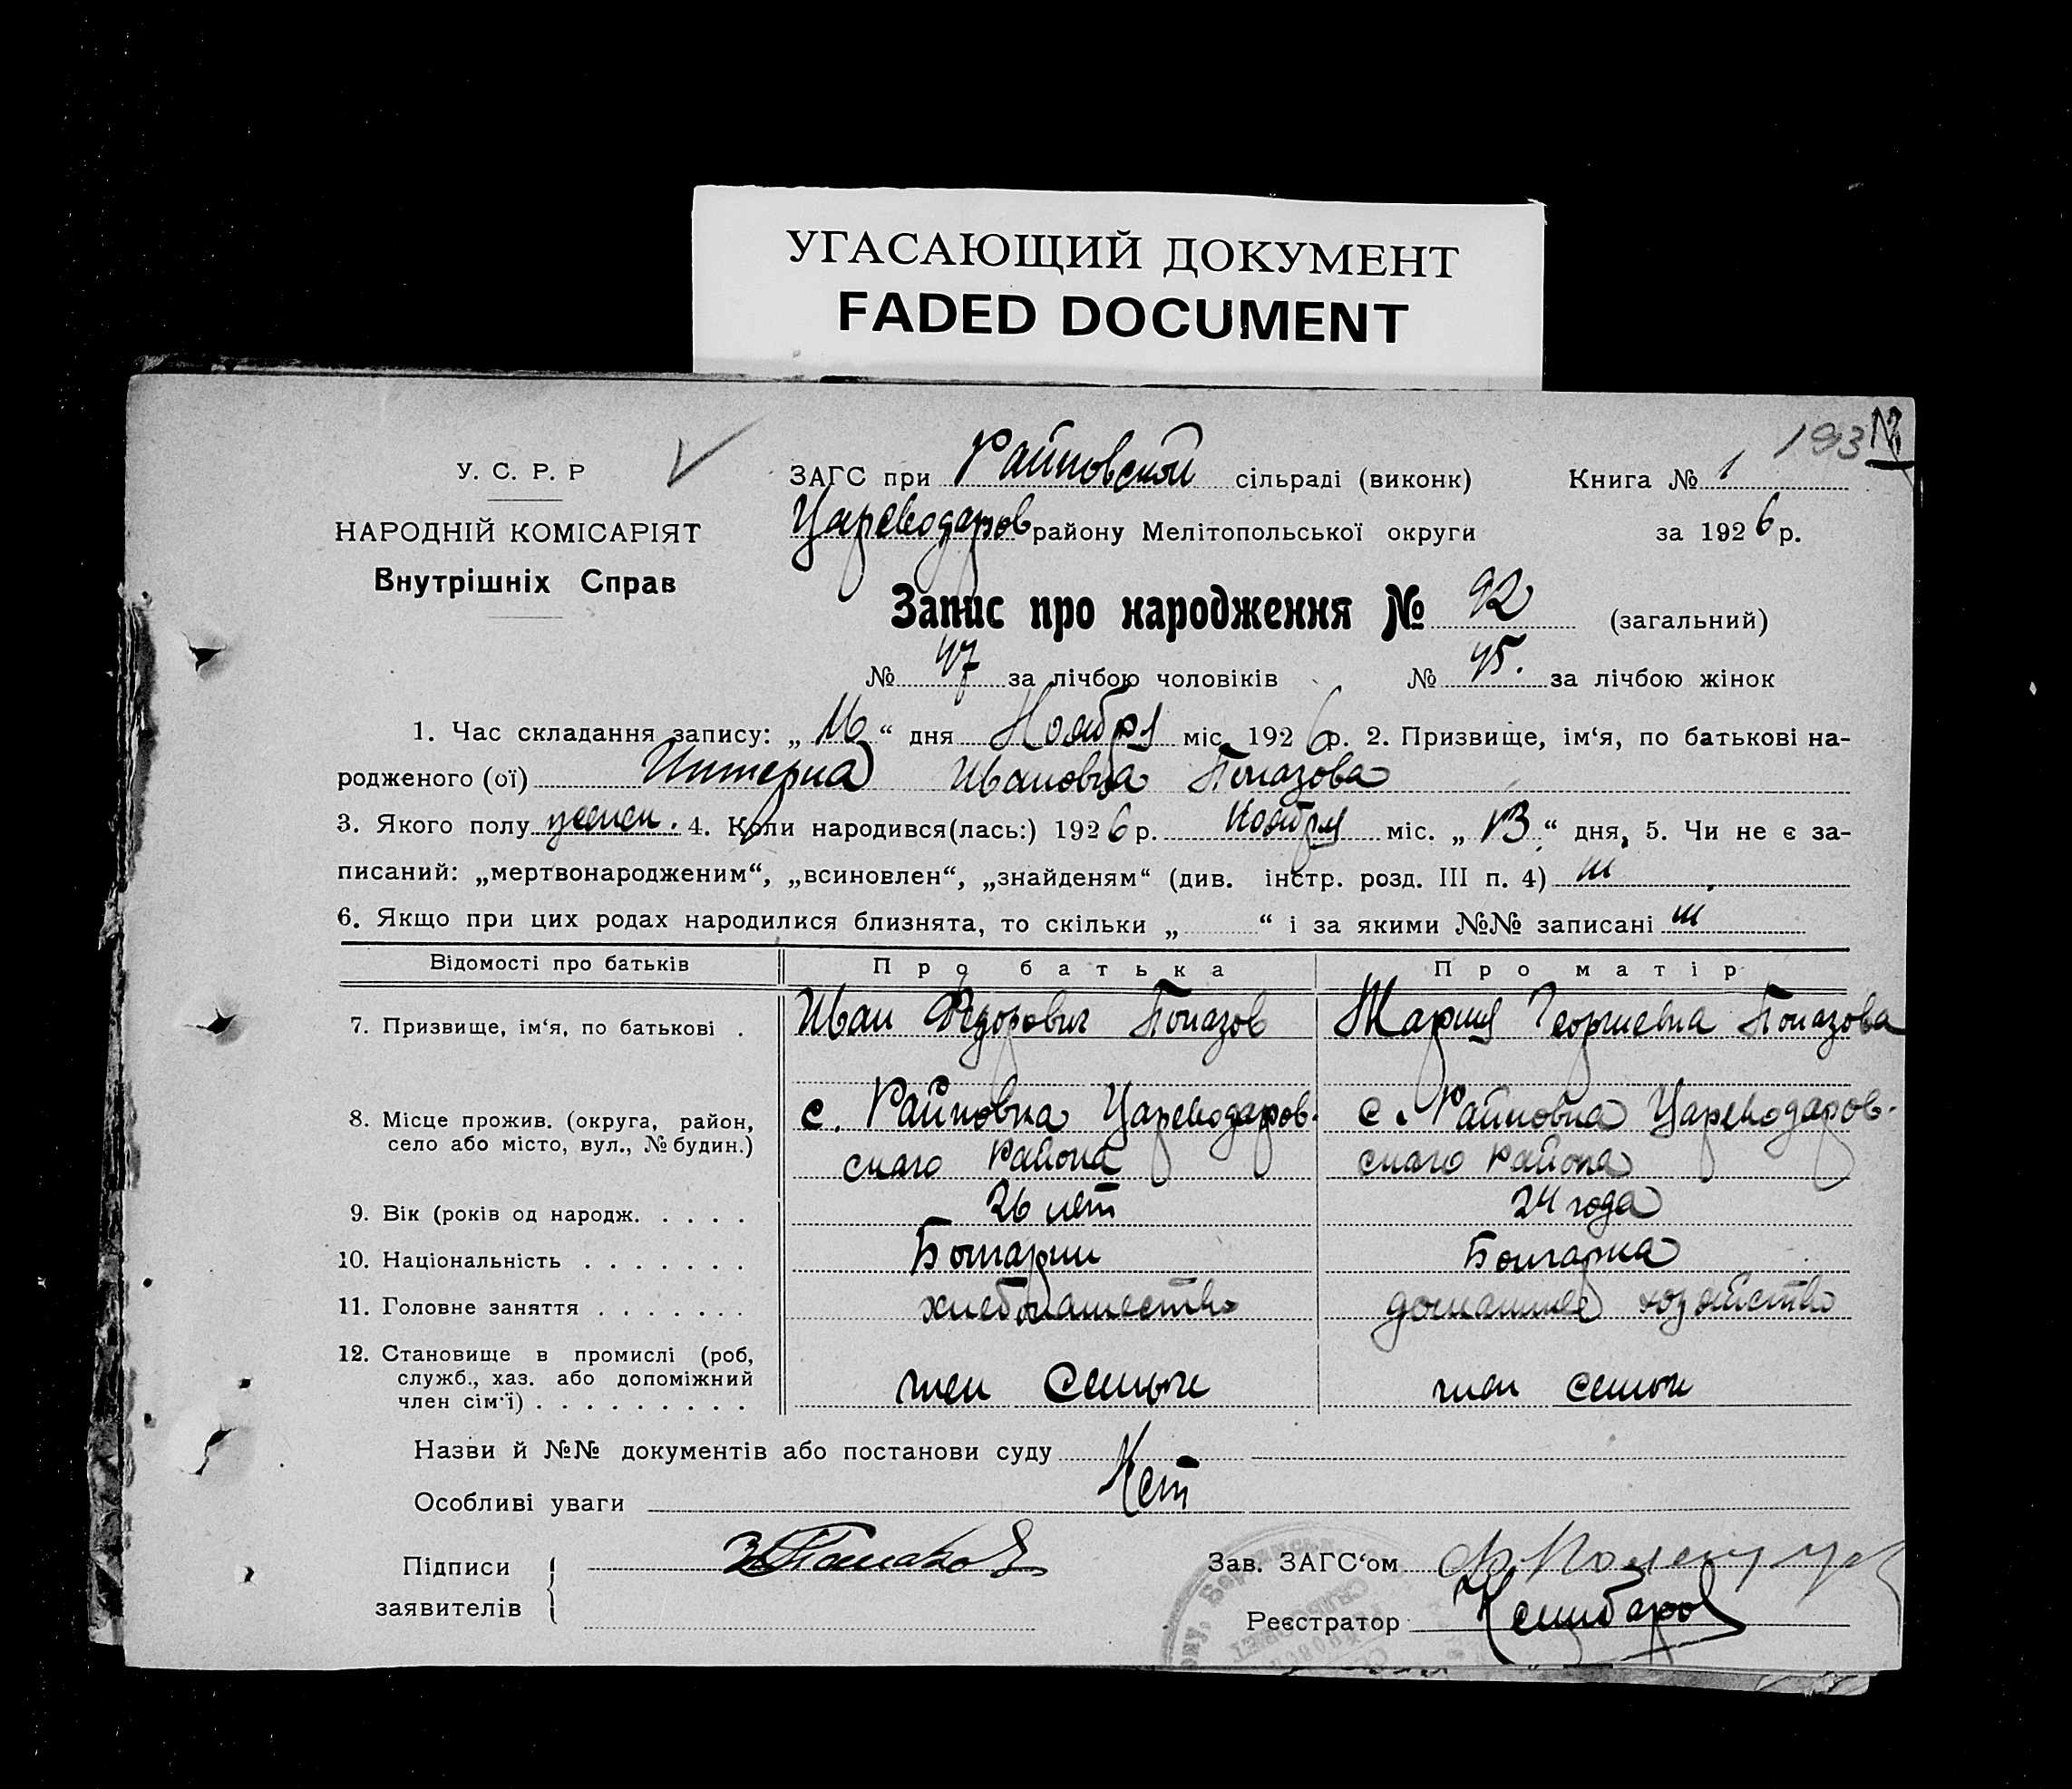 УГАСАЮЩИЙ ДОКУМЕНТ
FADED DOCUMENT
193
У. С. Р. Р
НАРОДНІЙ КОМІСАРІЯТ
Внутрішніх Справ
ЗАГС при Райновской сільраді (виконк) Книга № 1
Цареводаров району Мелітопольської округи за 1926 р.
Запис про народження № 92 (загальний)
№ 47 за лічбою чоловіків № 45. за лічбою жінок
1. Час складання запису: „16“ дня Ноября міс. 1926 р. 2. Призвище, ім‘я, по батькові на-
родженого (ої) Интерна Ивановна Попазова
3. Якого полу женск. 4. Коли народився(лась:) 1926 р. Ноября міс. „13“ дня, 5. Чи не є за-
писаний: „мертвонародженим“, „всиновлен“, „знайденям“ (див. інстр. розд. III п. 4)
6. Якщо при цих родах народилися близнята, то скільки „ “ і за якими №№ записані
Відомості про батьків Про батька Про матір
7. Призвище, ім‘я, по батькові . Иван Федорович Попазов Мария Георгиевна Попазова
8. Місце прожив. (округа, район, с. Райновка Цареводаров- с. Райновка Цареводаров-
село або місто, вул., № будин.) скаго района скаго района
9. Вік (років од народж. . . . . 26 лет 24 года
10. Національність . . . . . . . Болгарин Болгарка
11. Головне заняття . . . . . . . хлебопашество домашнее хозяйство
12. Становище в промислі (роб,
служб., хаз. або допоміжний член семьи член семьи
член сім‘ї) . . . . . . . . .
Назви й №№ документів або постанови суду
Особливі уваги Нет
Підписи
заявителів
Зав. ЗАГС‘ом
Реєстратор